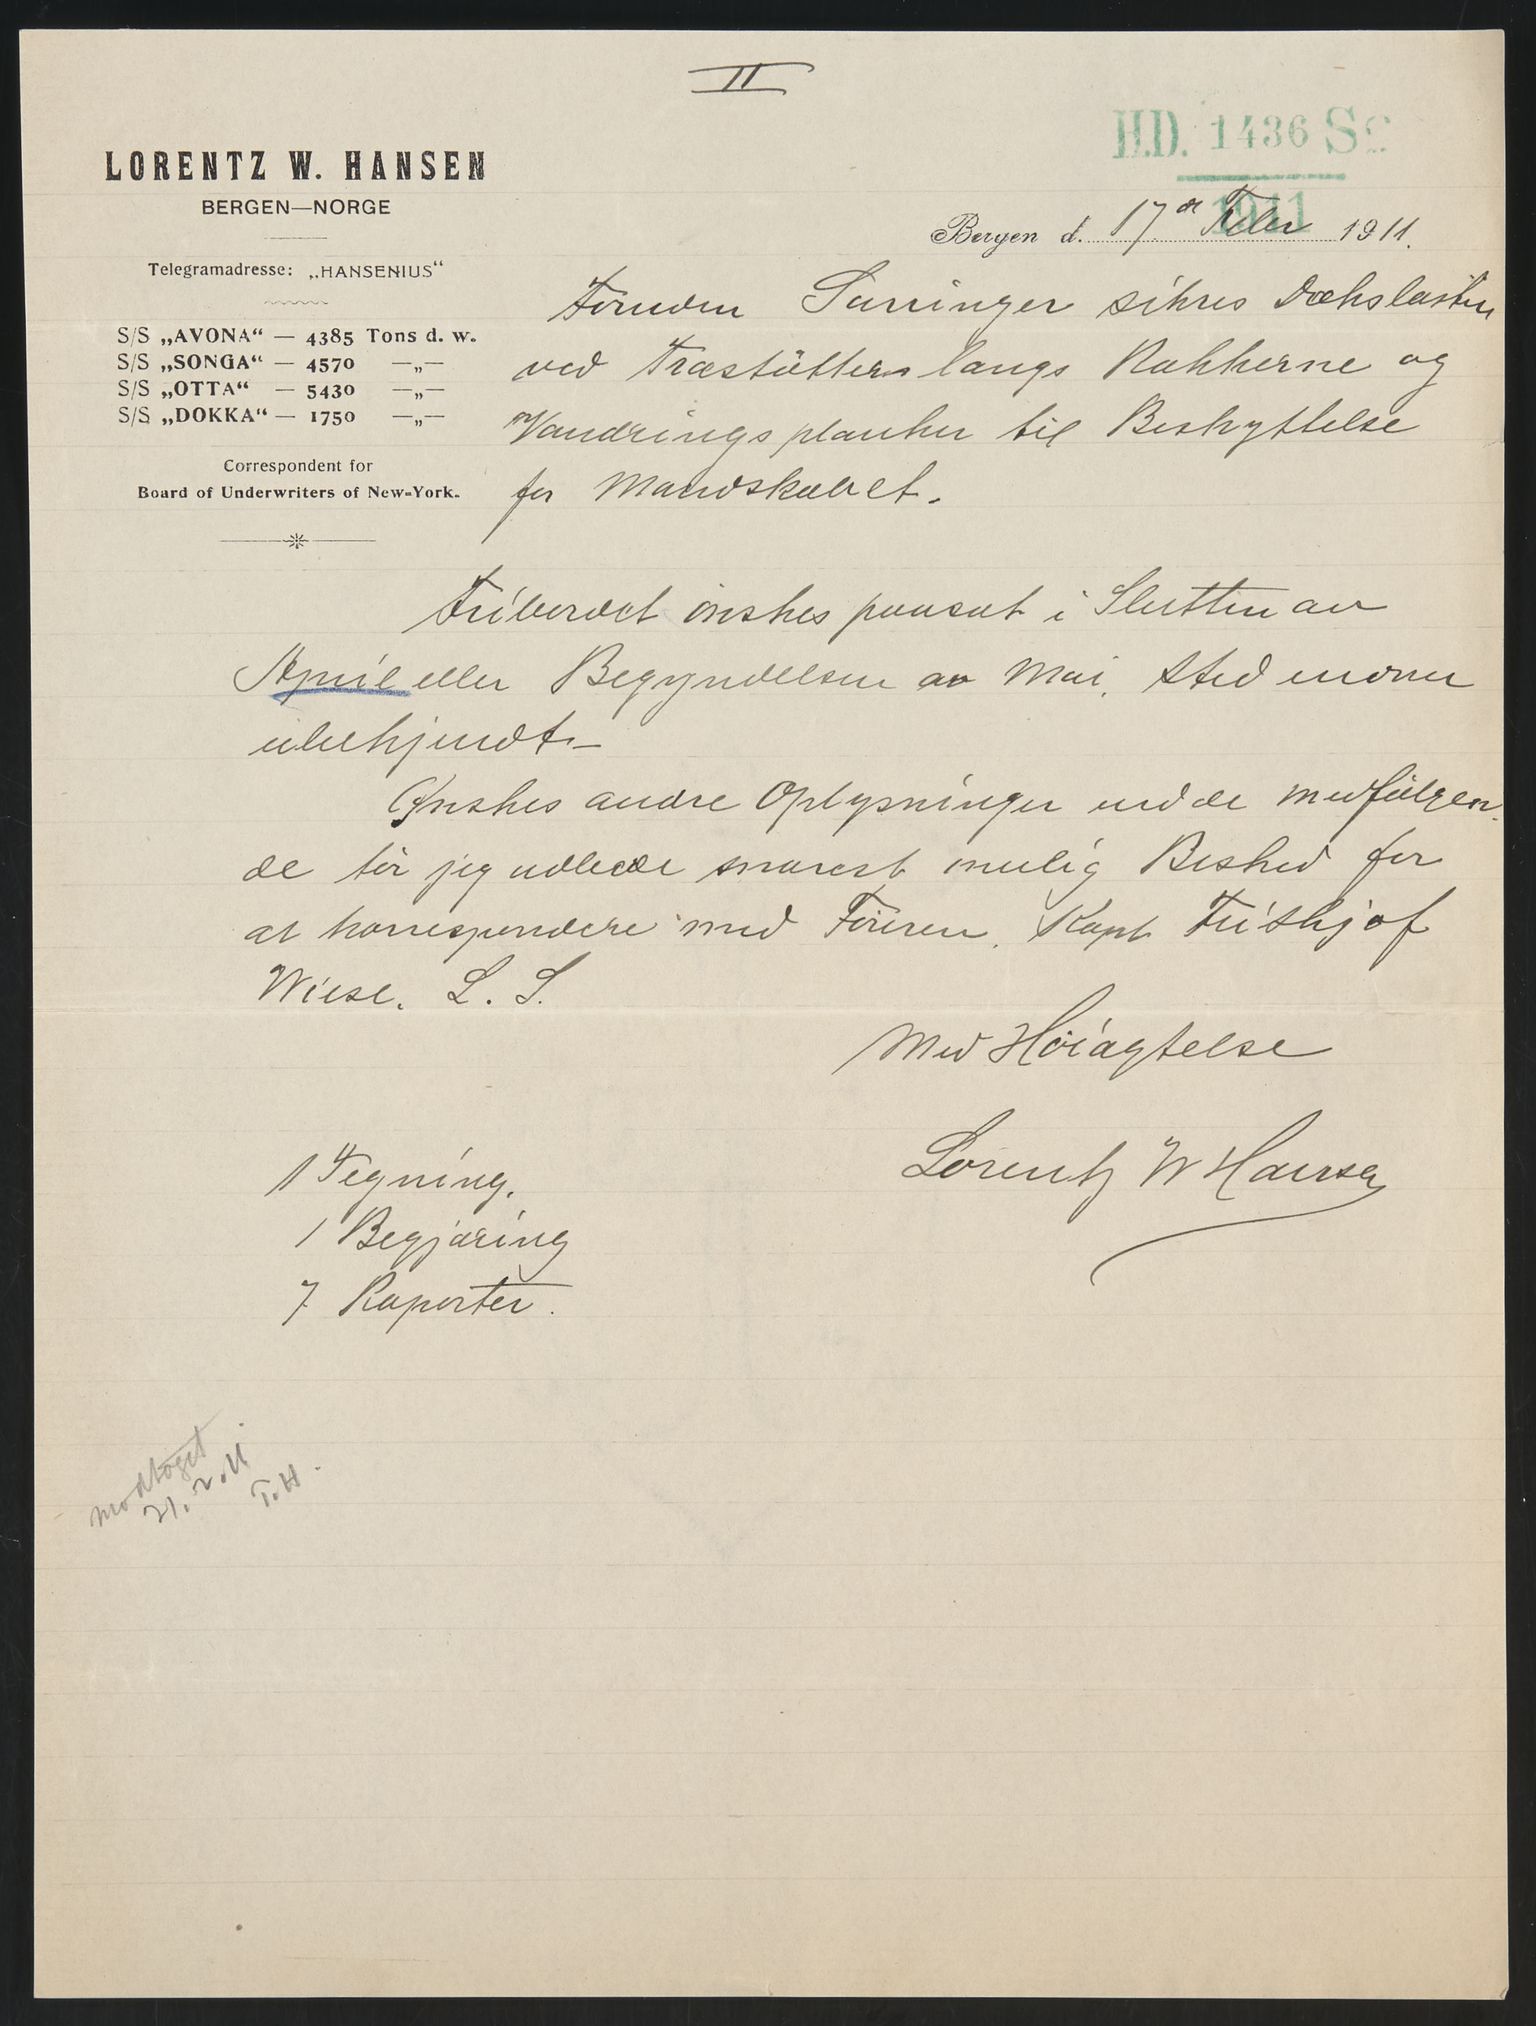 II
H.D. 1436 Sc
1911
LORENTZ W. HANSEN
BERGEN—NORGE
Telegramadresse: „HANSENIUS“
S/S „AVONA“ — 4385 Tons d. w.
S/S „SONGA“ — 4570 —„—
S/S „OTTA“ — 5430 —„—
S/S „DOKKA“ — 1750 —„—
Correspondent for
Board of Underwriters of New-York.
Bergen d. 17de Febr 1911.
Foruden Surringer sikres Dækslasten
ved Træstötter langs Rækkerne og
Vandringsplanker til Beskyttelse
for Mandskabet.
Fribordet önskes paasat i Slutten av
April eller Begyndelsen av Mai, Sted endnu
ubekjendt.—
Ønskes andre Oplysninger end de medfølgen-
de tör jeg udbede snarest mulig Besked for
at korrespondere med Föreren, Kapt Frithjof
Wiese. L. S.
Med Höiagtelse
Lorentz W Hansen
1 Tegning.
1 Begjæring
7 Raporter.
Modtaget
21.2.11
T.H.